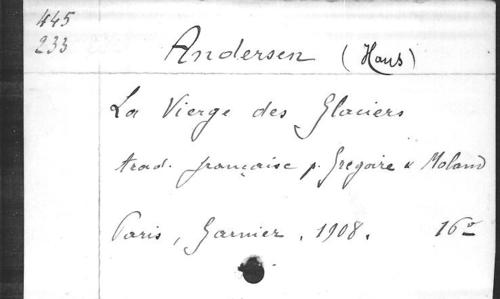 445
233
Andersen (Hans)
La Vierge des Glaciers
trad. française p. Grégoire & Moland
Paris, Garnier. 1908. 16º